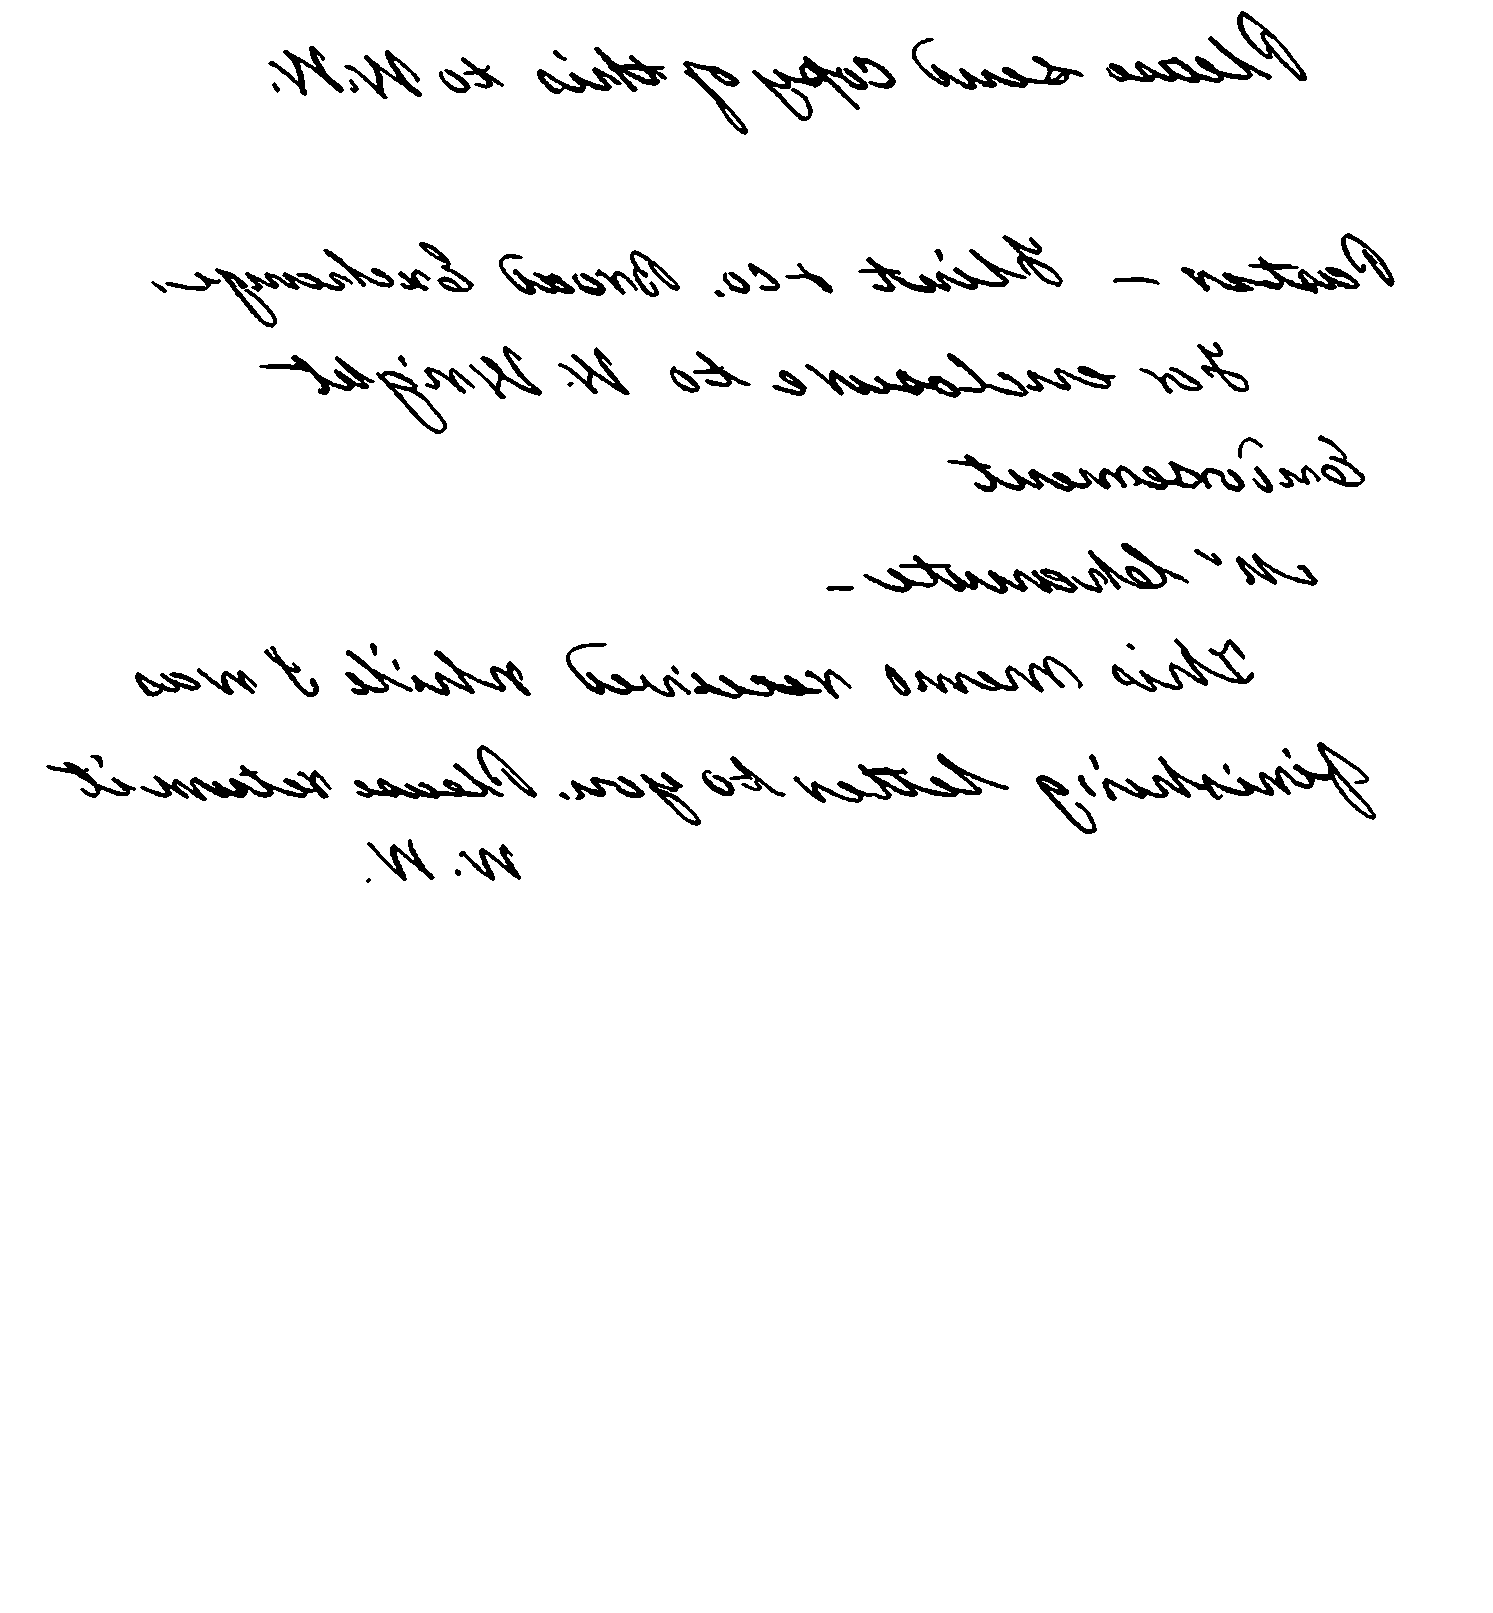 Please send copy of this to W.W.
Poster – Flint & co. Broad Exchange,
For enclosure to W. Wright
Endorsement
Mr Chanute –
This memo received while I was
finishing letter to you. Please return it
W. W.